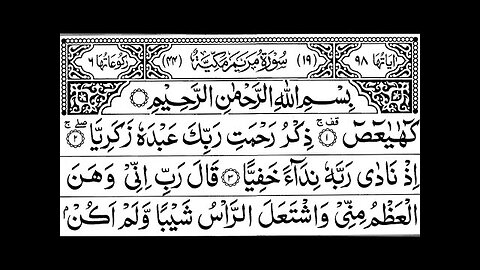 اٰيَاتُهَا ٩٨ (١٩) سُوْرَةُ مَرْيَمَ مَكِّيَّةٌ (٤٤) رُكُوْعَاتُهَا ٦
بِسْمِ اللّٰهِ الرَّحْمٰنِ الرَّحِيْمِ
كٓهٰيٰعٓصٓ ۚ۟قف ١ ذِكْرُ رَحْمَتِ رَبِّكَ عَبْدَهٗ زَكَرِيَّا ۖۚ ٢
اِذْ نَادٰى رَبَّهٗ نِدَآءً خَفِيًّا ٣ قَالَ رَبِّ اِنِّىْ وَهَنَ
الْعَظْمُ مِنِّىْ وَاشْتَعَلَ الرَّاْسُ شَيْبًا وَّلَمْ اَكُنْۢ